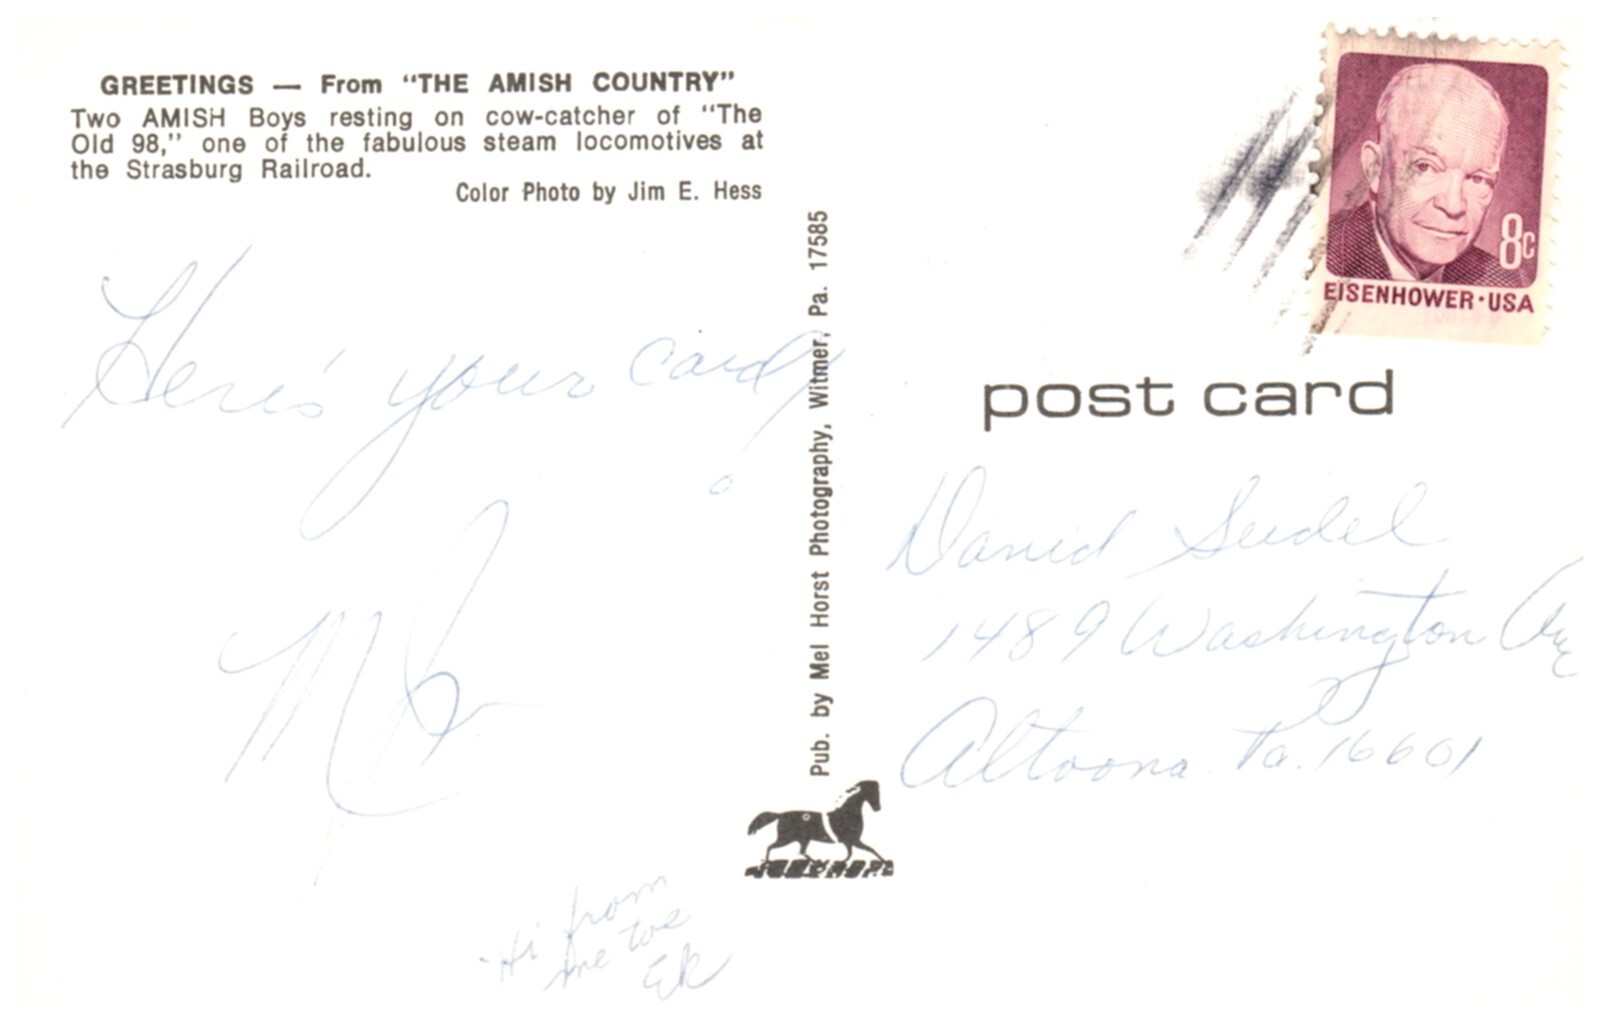 GREETINGS — From "THE AMISH COUNTRY"
Two AMISH Boys resting on cow-catcher of "The
Old 98," one of the fabulous steam locomotives at
the Strasburg Railroad.
Color Photo by Jim E. Hess
Here's your card
Hi from
me too
Pub. by Mel Horst Photography, Witmer, Pa. 17585
8c
EISENHOWER · USA
post card
David Seidel
1489 Washington Ave
Altoona Pa. 16601